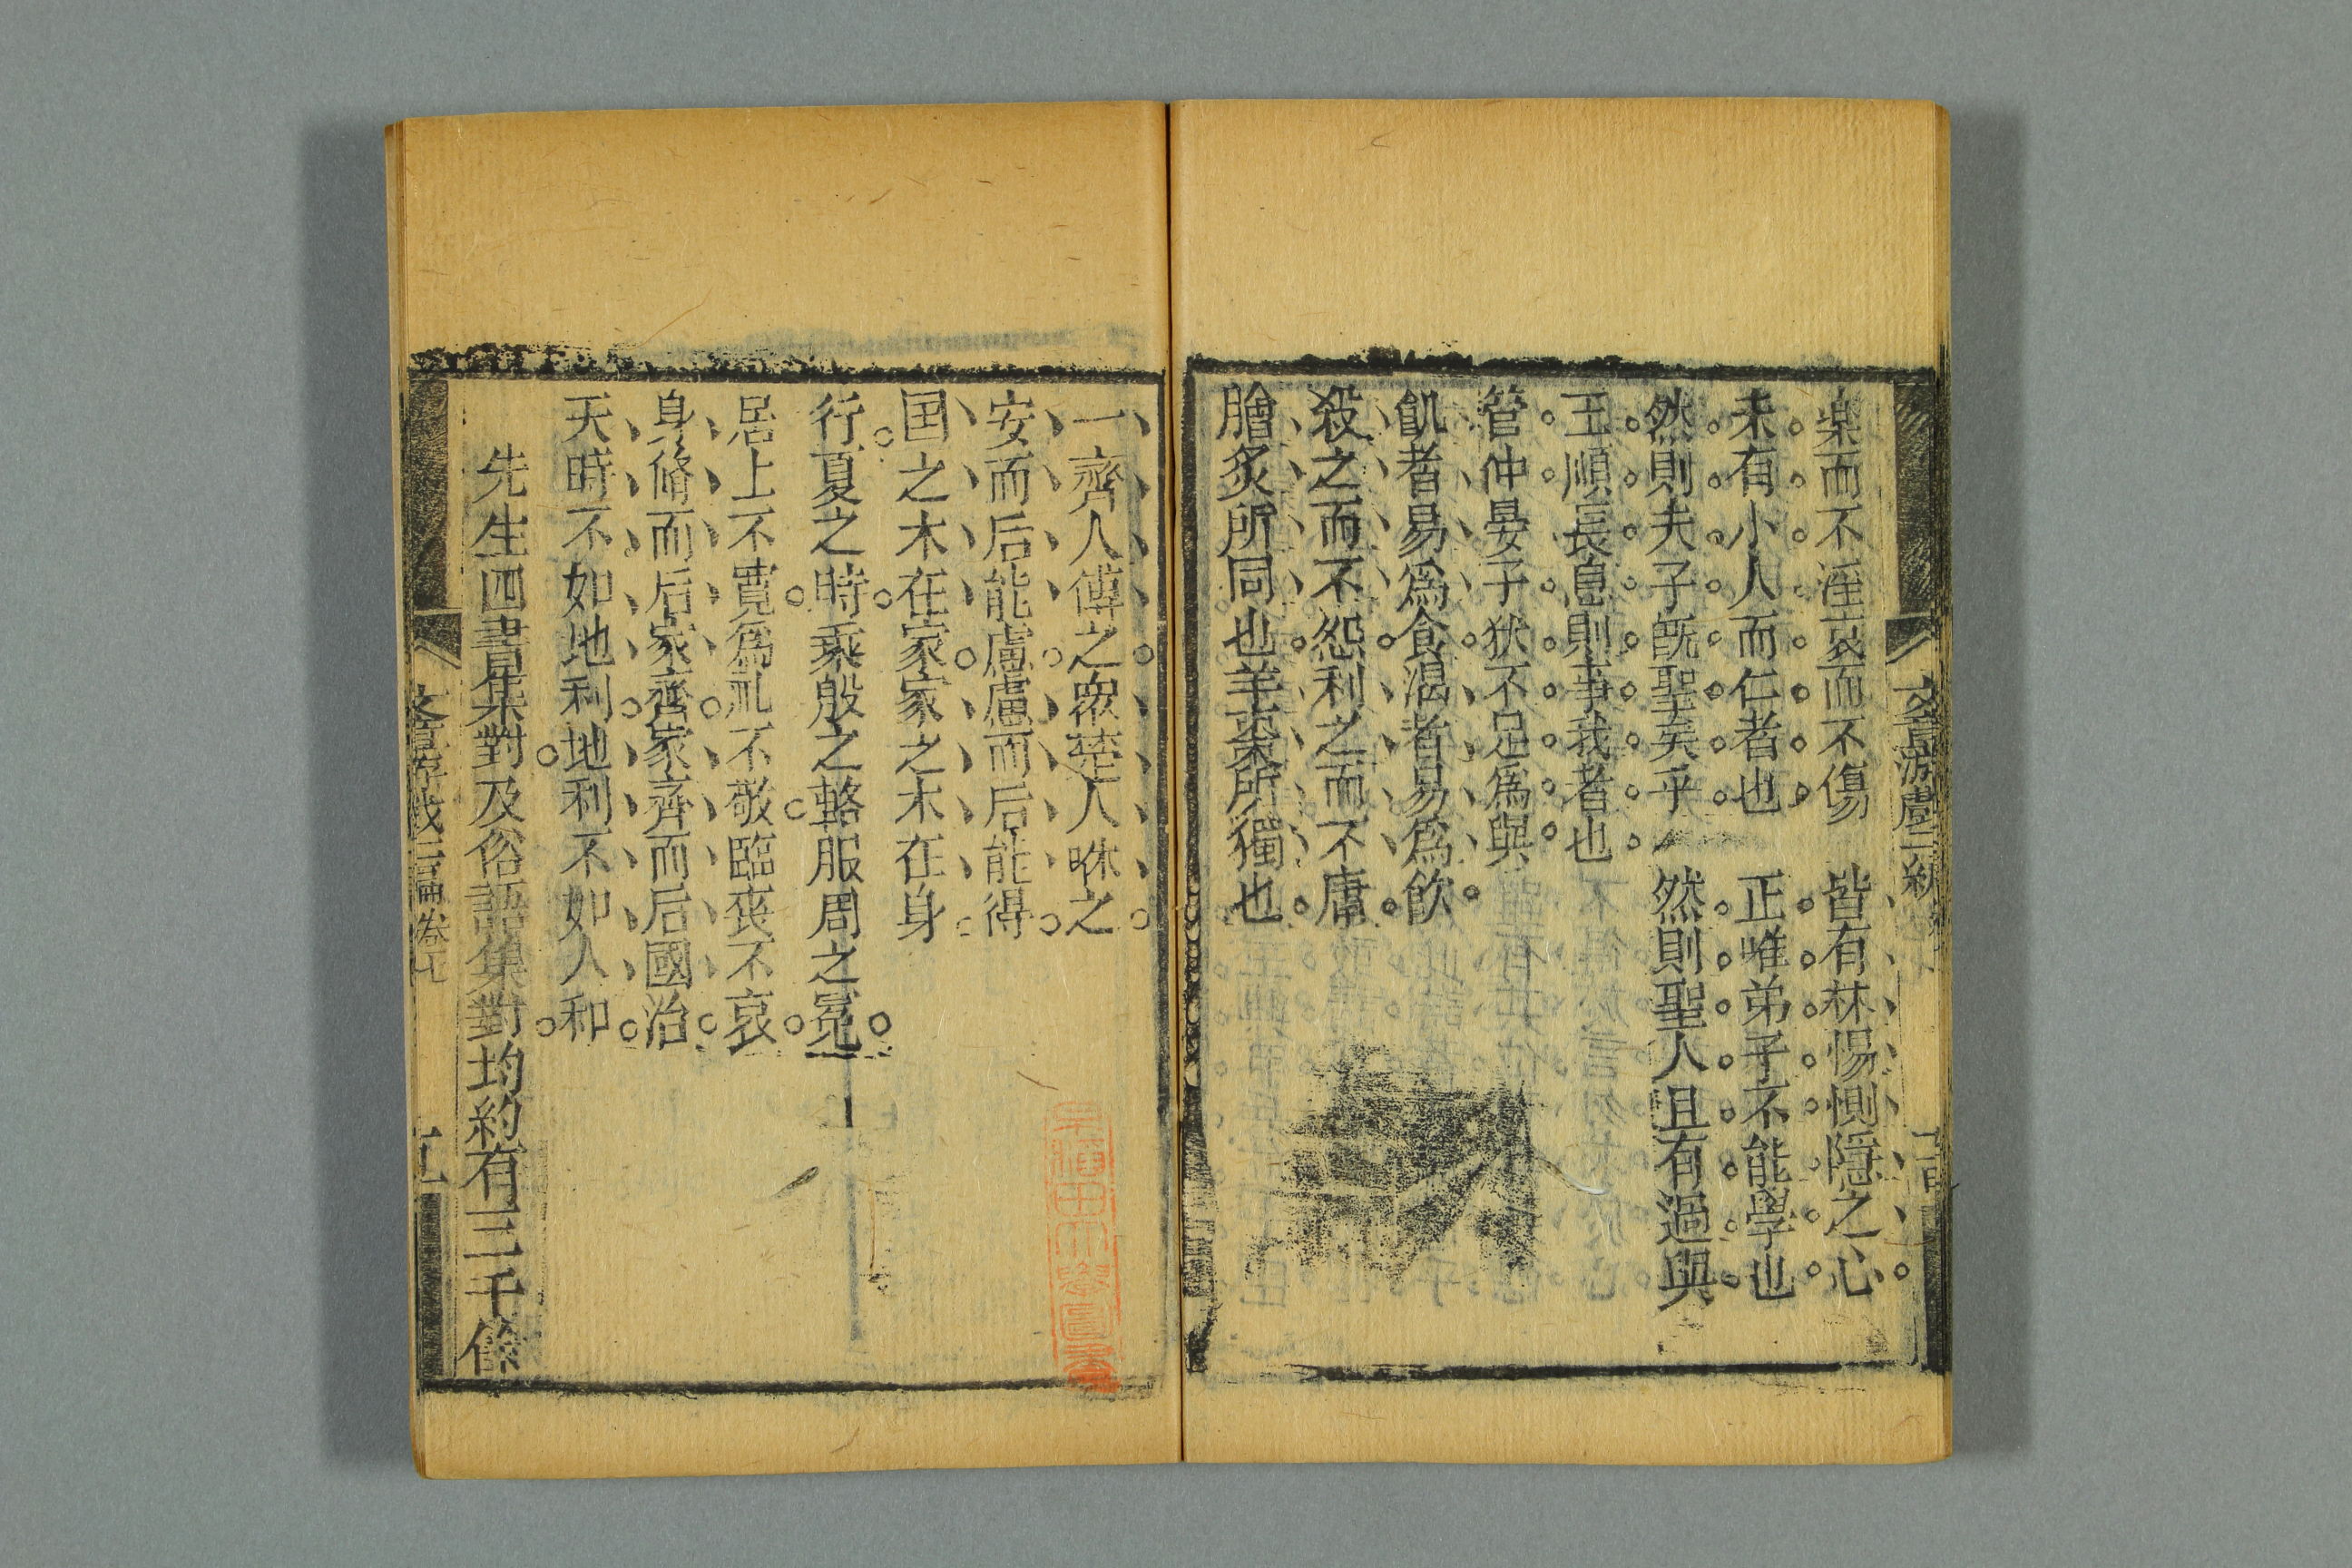 楽而不淫哀而不傷　皆有怵惕惻隱之心
未有小人而仁者也　正唯弟子不能學也
然則夫子既聖矣乎　然則聖人且有過與
王順長息則事我者也
管仲晏子猶不足爲與
飢者易爲食渴者易爲飲
殺之而不怨利之而不庸
膾炙所同也羊棗所獨也
一齊人傅之衆楚人咻之
安而后能慮慮而后能得
国之本在家家之本在身
行夏之時乘殷之輅服周之冕
居上不寛爲礼不敬臨喪不哀
身脩而后家齊家齊而后國治
天時不如地利地利不如人和
先生四書集對及俗語集對均約有三千餘